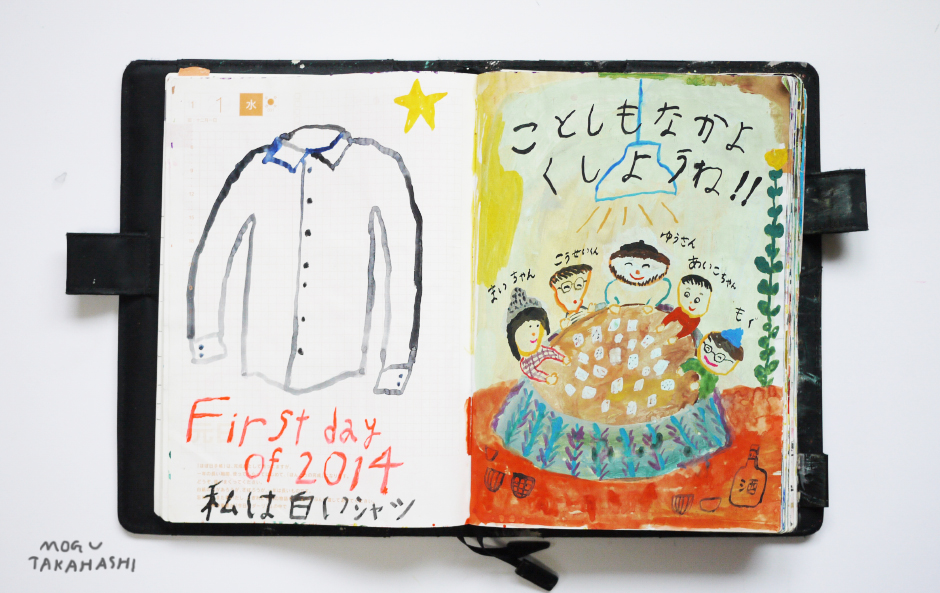 1 水
First day
of 2014
私は白いシャツ
ことしもなかよ
くしようね!!
まいちゃん
こうせいくん
ゆうさん
あいこちゃん
もぐ
酒
MOGU
TAKAHASHI